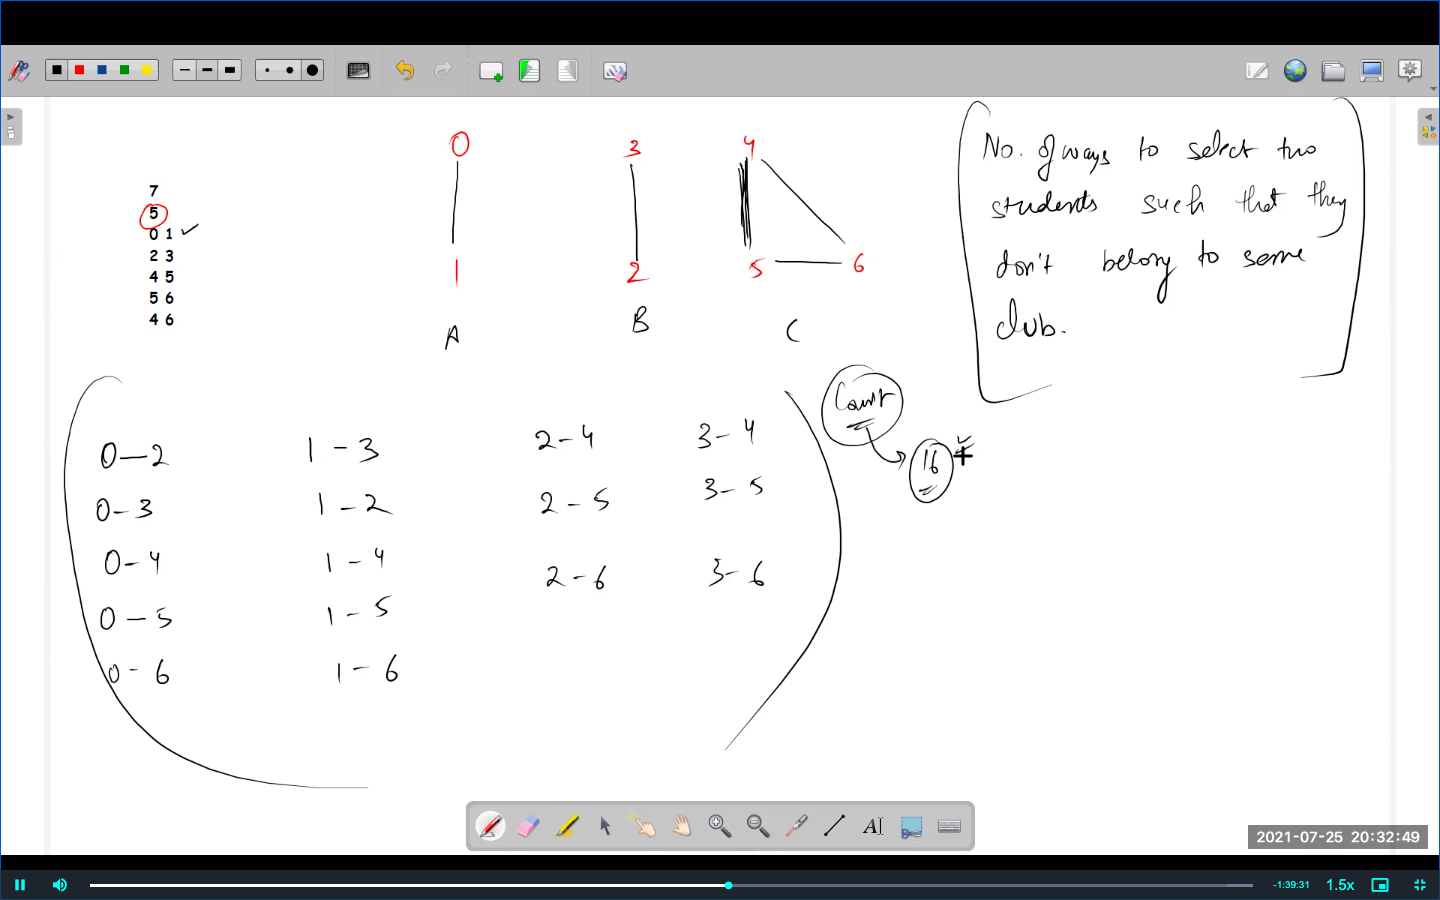 7
5
0 1
2 3
4 5
5 6
4 6
0 3 4
1 2 5 6
A B C
No. of ways to select two
students such that they
don't belong to same
club.
Count
16 +
0-2 1-3 2-4 3-4
0-3 1-2 2-5 3-5
0-4 1-4 2-6 3-6
0-5 1-5
0-6 1-6
A
2021-07-25 20:32:49
-1:39:31 1.5x